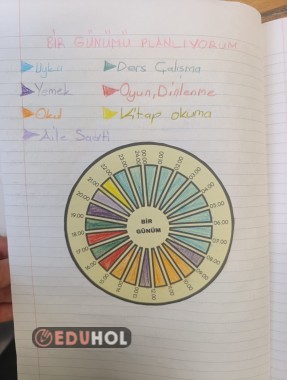 BİR GÜNÜMÜ PLANLIYORUM
Uyku Ders Çalışma
Yemek Oyun, Dinlenme
Okul Kitap okuma
Aile Saati
BİR
GÜNÜM
24.00
01.00
02.00
03.00
04.00
05.00
06.00
07.00
08.00
09.00
10.00
11.00
12.00
13.00
14.00
15.00
16.00
17.00
18.00
19.00
20.00
21.00
22.00
23.00
EDUHOL